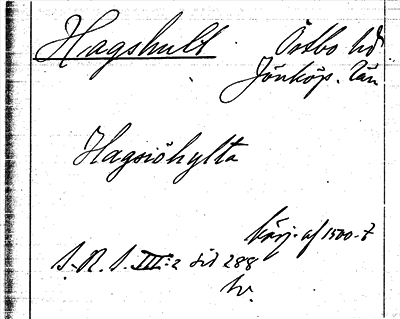 Hagshult Östbo hd
Jönköp. län
Hagsiöhylta
börj. af 1500-t
S.R.S. III:2 sid 288